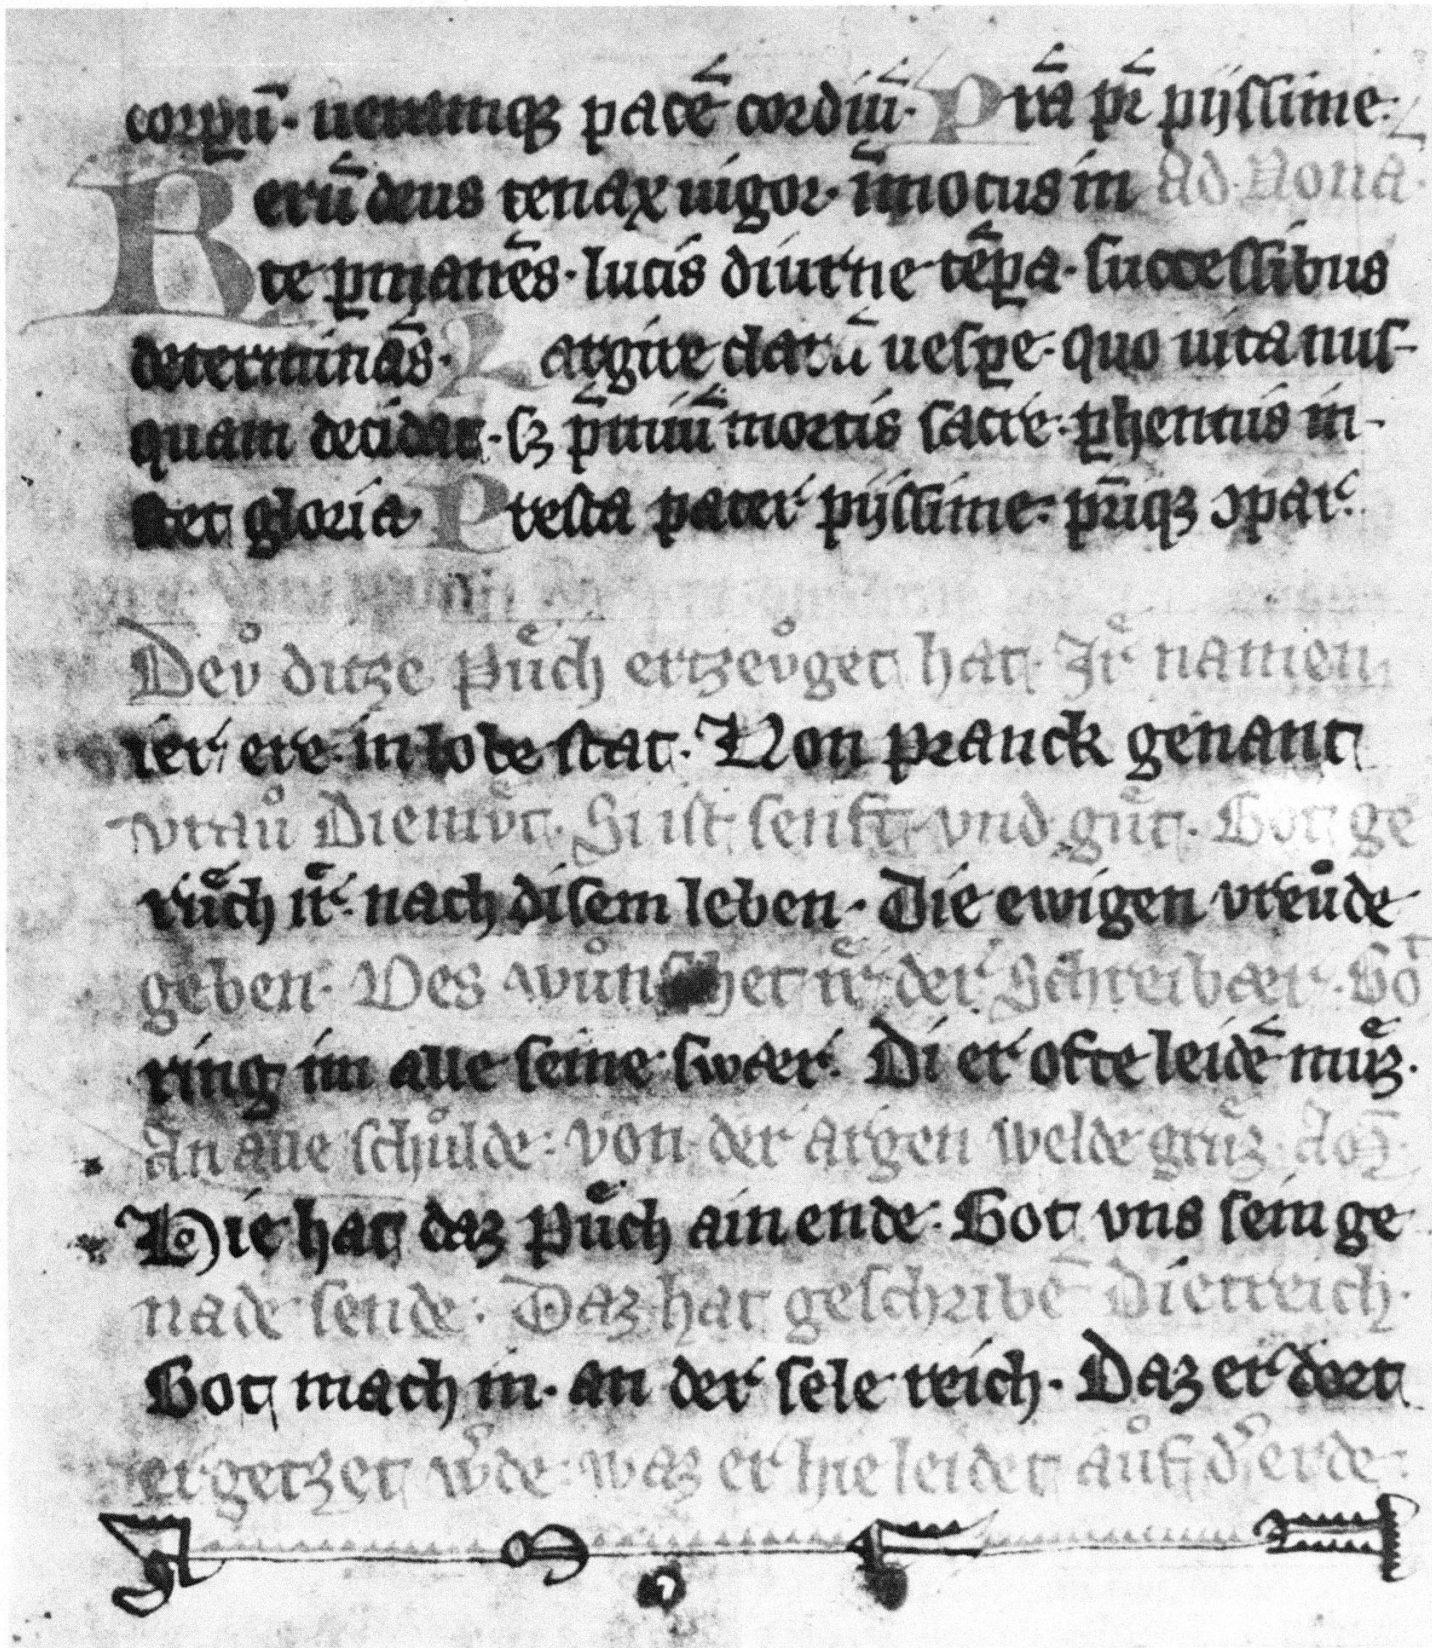 corpū· ueramqꝫ pacē cordiū· Pͬtā pr̄ pijssime·
Rerū deus tenax uigor· īmotus in Ad Nona·
te ꝑmanēs· lucis diurne tēꝑa· successibus
determinās· Largire clarū uesꝑe· quo uita nus-
quam decidat· sꝫ p̄miū mortis sacre· ꝑhennis in-
stet gloria· Presta pater pijssime· pr̄iqꝫ ɔpar·
Devͦ ditze Puͤch ertzevͦget hat· Ir namen
ier ere in lobe stat· Von Pranck genant
vrauͦ Diemvͤt· Si ist senft vnd guͤt· Got ge
ruͤch ir· nach disem leben· Die ewigen vreuͦde
geben· Des wuͦnschet ir der Schreibær· Got
ring im alle seine swær· Di er ofte leidē muͤz·
An alle schuͦlde· von der argen welde gruͤz·
Hie hat daz Puͤch ain ende· Got vns sein ge
nade sende· Daz hat geschribē Dietreich·
Got mach in· an der sele reich· Daz er dort
ergetzet w̓de· waz er hie leidet auͦf d̓ erde·